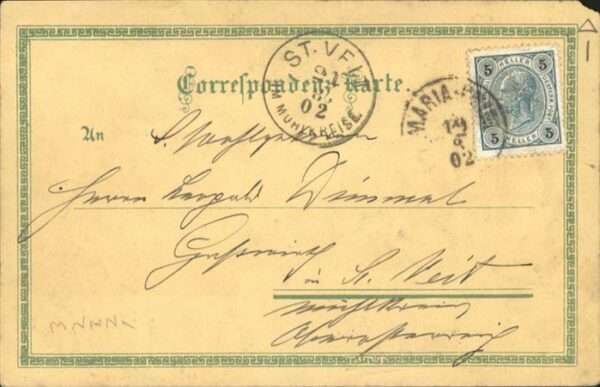 Correspondenz-Karte.
ST. VEI
02
M MÜHLKREISE.
MARIA-
02
5 HELLER 5
5 HELLER 5
An
S. Wohlgeboren
Herrn Leopold Dimmel
Gastwirth
in St. Veit
Mühlkreis
Oberösterreich